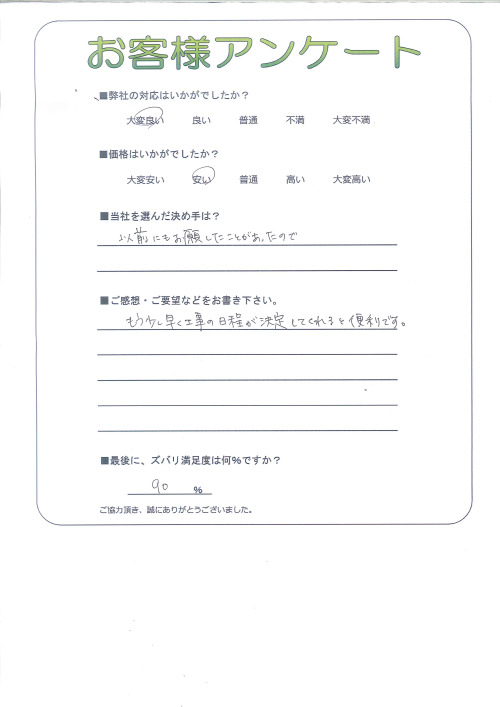 お客様アンケート
■弊社の対応はいかがでしたか？
大変良い 良い 普通 不満 大変不満
■価格はいかがでしたか？
大変安い 安い 普通 高い 大変高い
■当社を選んだ決め手は？
以前にもお願したことがあったので
■ご感想・ご要望などをお書き下さい。
もう少し早く工事の日程が決定してくれると便利です。
■最後に、ズバリ満足度は何％ですか？
90 ％
ご協力頂き、誠にありがとうございました。